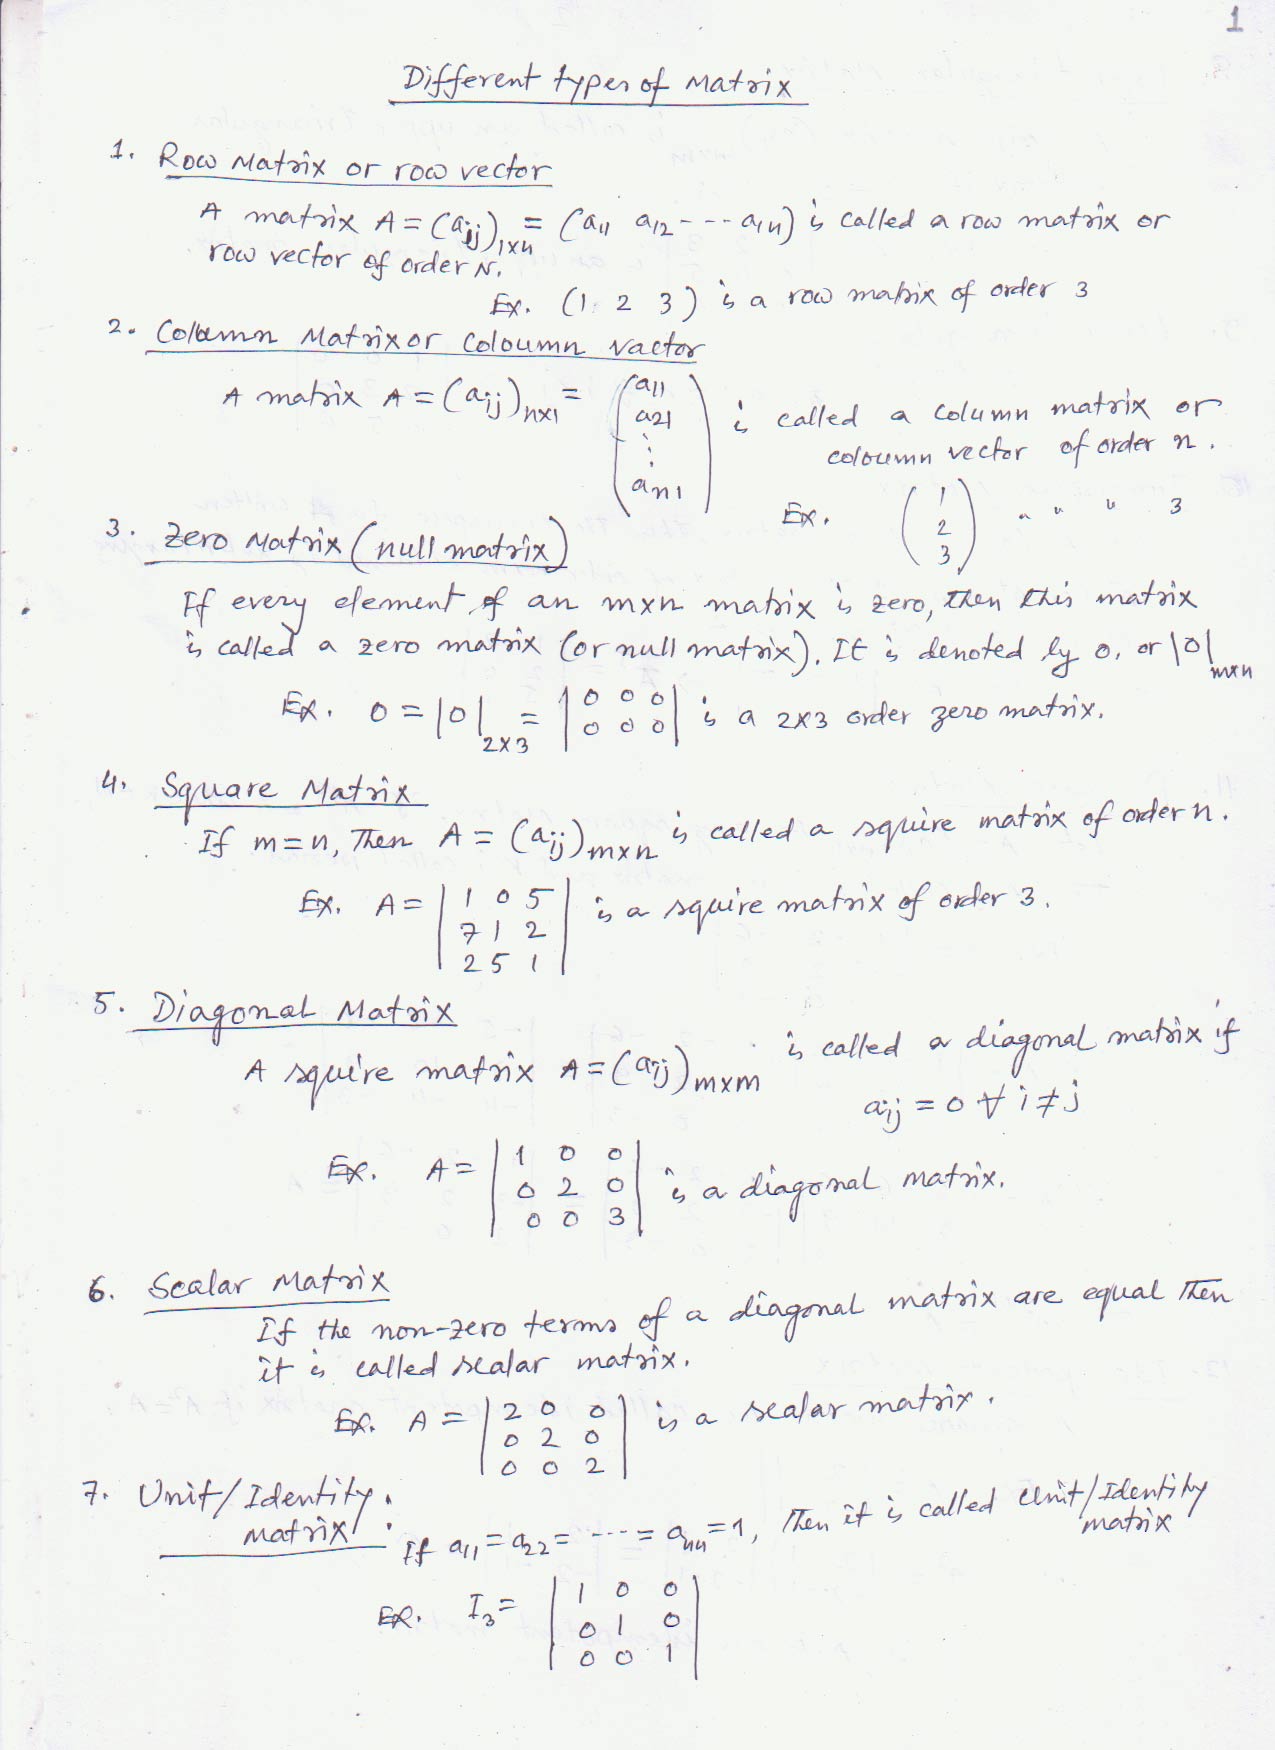 1
Different types of Matrix
1. Row Matrix or row vector
A matrix A = (aij)1×n = (a11 a12 ---- a1n) is called a row matrix or
row vector of order N.
Ex. (1 2 3) is a row matrix of order 3
2. Column Matrix or Coloumn Vactor
A matrix A = (aij)n×1 = (a11 a21 ⋮ an1) is called a column matrix or
coloumn vector of order n.
Ex. (1 2 3) " " " 3
3. Zero Matrix (null matrix)
If every element of an m×n matrix is zero, then this matrix
is called a zero matrix (or null matrix). It is denoted by 0, or |0|m×n
Ex. 0 = |0|2×3 = |0 0 0
0 0 0| is a 2×3 order zero matrix.
4. Square Matrix
If m=n, Then A = (aij)m×n is called a squire matrix of order n.
Ex. A = |1 0 5
7 1 2
2 5 1| is a squire matrix of order 3.
5. Diagonal Matrix
A squire matrix A = (aij)m×m is called a diagonal matrix if
aij = 0 ∀ i ≠ j
Ex. A = |1 0 0
0 2 0
0 0 3| is a diagonal matrix.
6. Scalar Matrix
If the non-zero terms of a diagonal matrix are equal then
it is called scalar matrix.
Ex. A = |2 0 0
0 2 0
0 0 2| is a scalar matrix.
7. Unit/Identity
matrix : If a11 = a22 = ---- = ann = 1, Then it is called Unit/Identity
matrix
Ex. I3 = |1 0 0
0 1 0
0 0 1|